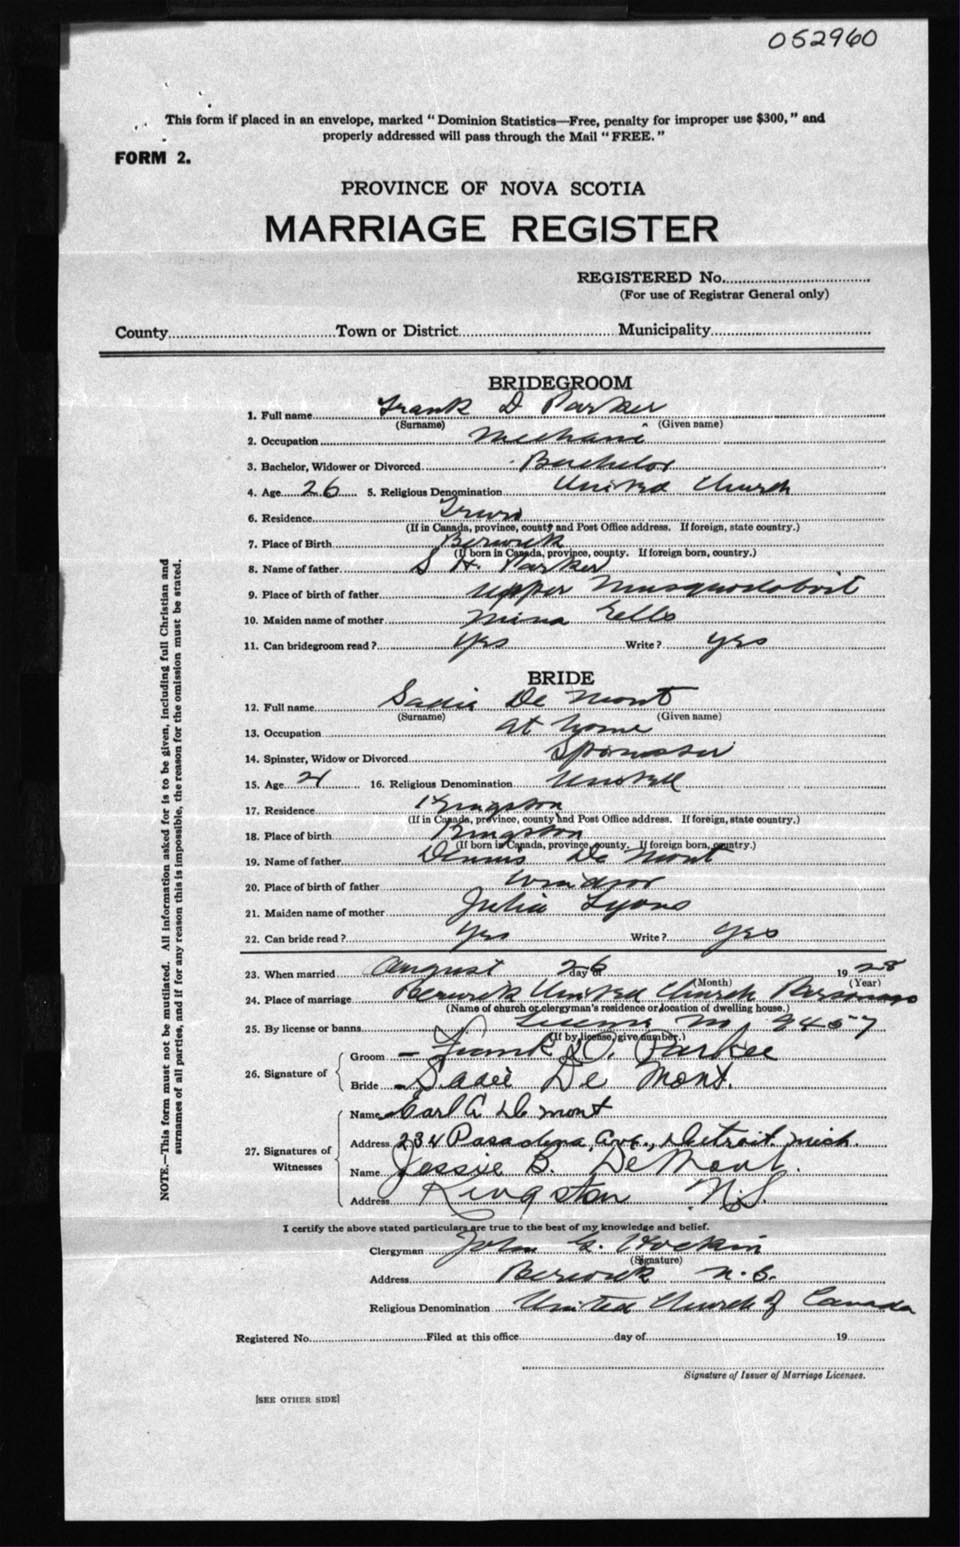 052960
This form if placed in an envelope, marked "Dominion Statistics—Free, penalty for improper use $300," and
properly addressed will pass through the Mail "FREE."
FORM 2.
PROVINCE OF NOVA SCOTIA
MARRIAGE REGISTER
REGISTERED No.
(For use of Registrar General only)
County Town or District Municipality
BRIDEGROOM
1. Full name Frank D Parker
(Surname) (Given name)
2. Occupation Mechanic
3. Bachelor, Widower or Divorced Bachelor
4. Age 26 5. Religious Denomination United Church
6. Residence Truro
(If in Canada, province, county and Post Office address. If foreign, state country.)
7. Place of Birth Berwick
(If born in Canada, province, county. If foreign born, country.)
8. Name of father S H. Parker
9. Place of birth of father Upper Musquodoboit
10. Maiden name of mother Mina Eells
11. Can bridegroom read? Yes Write? Yes
BRIDE
12. Full name Sadie De Mont
(Surname) (Given name)
13. Occupation at home
14. Spinster, Widow or Divorced Spinster
15. Age 21 16. Religious Denomination United
17. Residence Kingston
(If in Canada, province, county and Post Office address. If foreign, state country.)
18. Place of birth Kingston
(If born in Canada, province, county. If foreign born, country.)
19. Name of father Dennis De Mont
20. Place of birth of father Windsor
21. Maiden name of mother Julia Lyons
22. Can bride read? Yes Write? Yes
23. When married August 26 day of 1928
(Month) (Year)
24. Place of marriage Berwick United Church Parsonage
(Name of church or clergyman's residence or location of dwelling house.)
25. By license or banns License No 9457
(If by license, give number.)
26. Signature of Groom Frank D. Parker
Bride Sadie De Mont.
27. Signatures of Witnesses Name Earl A DeMont
Address 234 Pasadena Ave., Detroit Mich.
Name Jessie B. DeMont.
Address Kingston N.S.
I certify the above stated particulars are true to the best of my knowledge and belief.
Clergyman John G. Hockin
(Signature)
Address Berwick N.S.
Religious Denomination United Church of Canada
Registered No. Filed at this office day of 19
Signature of Issuer of Marriage Licenses.
[SEE OTHER SIDE]
NOTE.—This form must not be mutilated. All information asked for is to be given, including full Christian and
surnames of all parties, and if for any reason this is impossible, the reason for the omission must be stated.